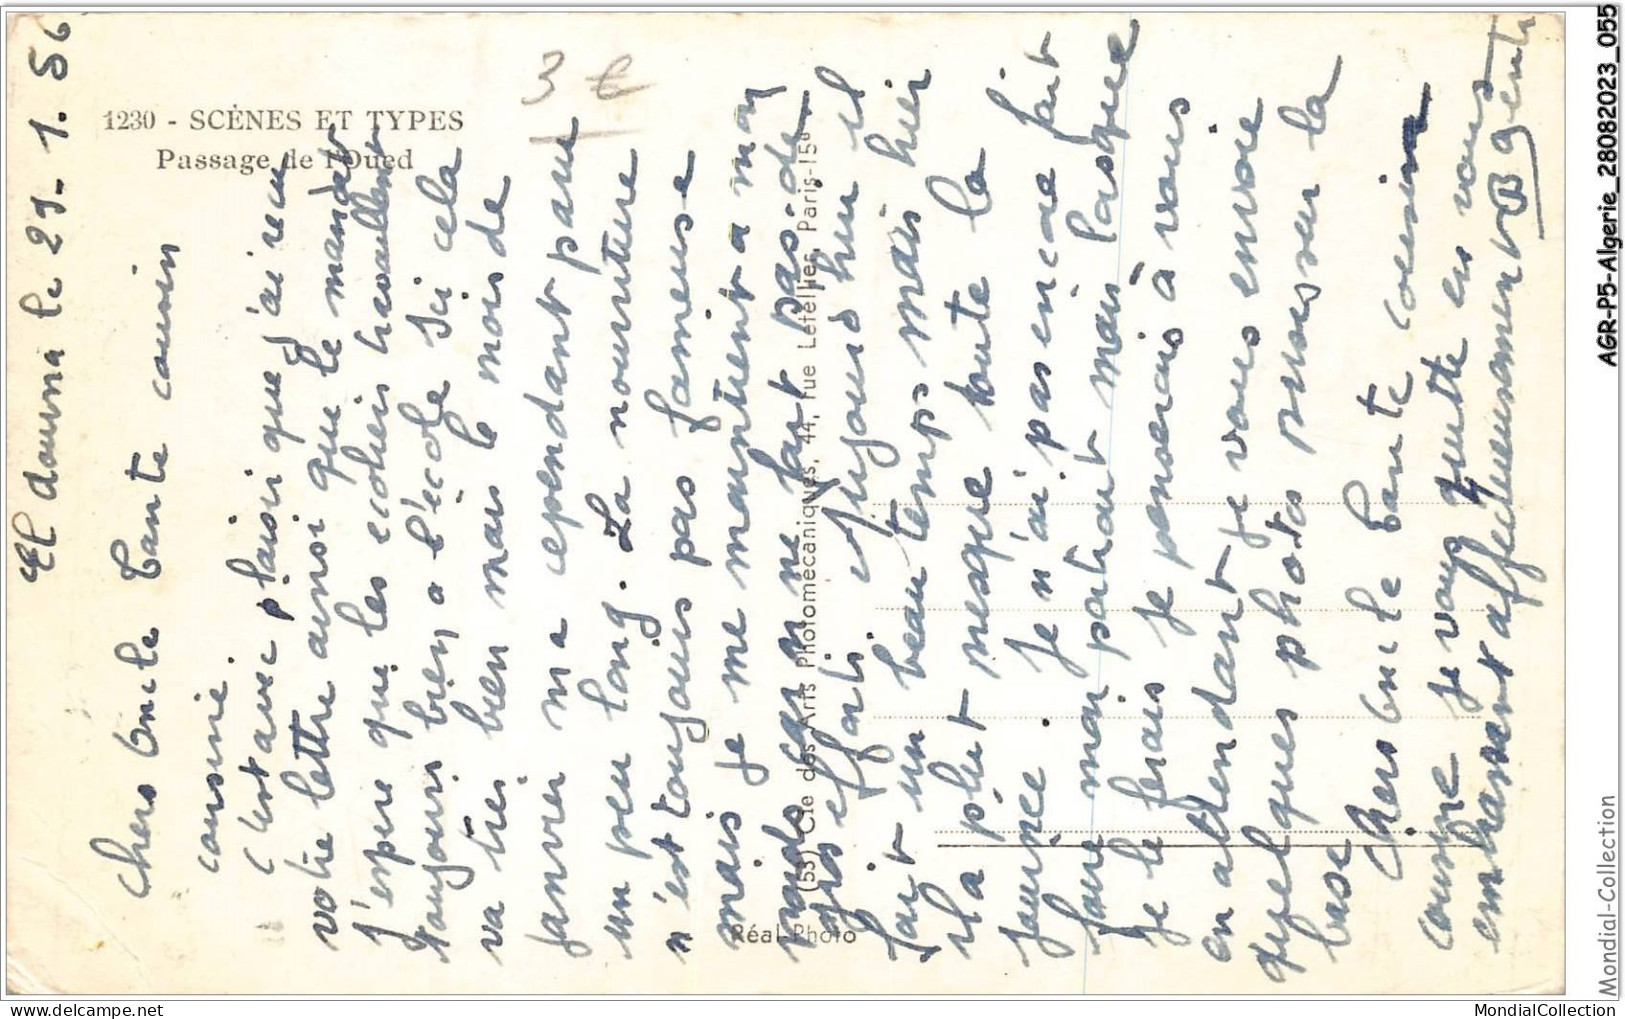 El douma le 29-1.56
Chers Oncle Tante cousin
cousine.
C'est avec plaisir que j'ai recu
votre lettre ainsi que le mandat
J'espere que les ecoliers travaillent
toujours bien a l'école Ici cela
va tres bien mais le mois de
janvier m'a cependant paru
un peu long. La nourriture
n'est toujours pas fameuse
mais je me maintient a mon
poids car on ne fait pas de
gros efforts Aujourd hui il
fait un beau temps mais hier
il a plut presque toute la
journée. Je n'ai pas encore fait
faire mon portrait mais lorsque
je le ferais je penserais à vous
en attendant je vous envoie
quelques photos prises sur la
base
Chers Oncle Tante cousin
cousine je vous quitte en vous
embrassant affectueusement
1230 - SCÈNES ET TYPES
Passage de l'Oued
3 €
(53) Cie des Arts Photomécaniques, 44, rue Letellier, Paris-15e
Réal-Photo
AGR-P5-Algerie_28082023_055
Mondial-Collection
delcampe.net
MondialCollection